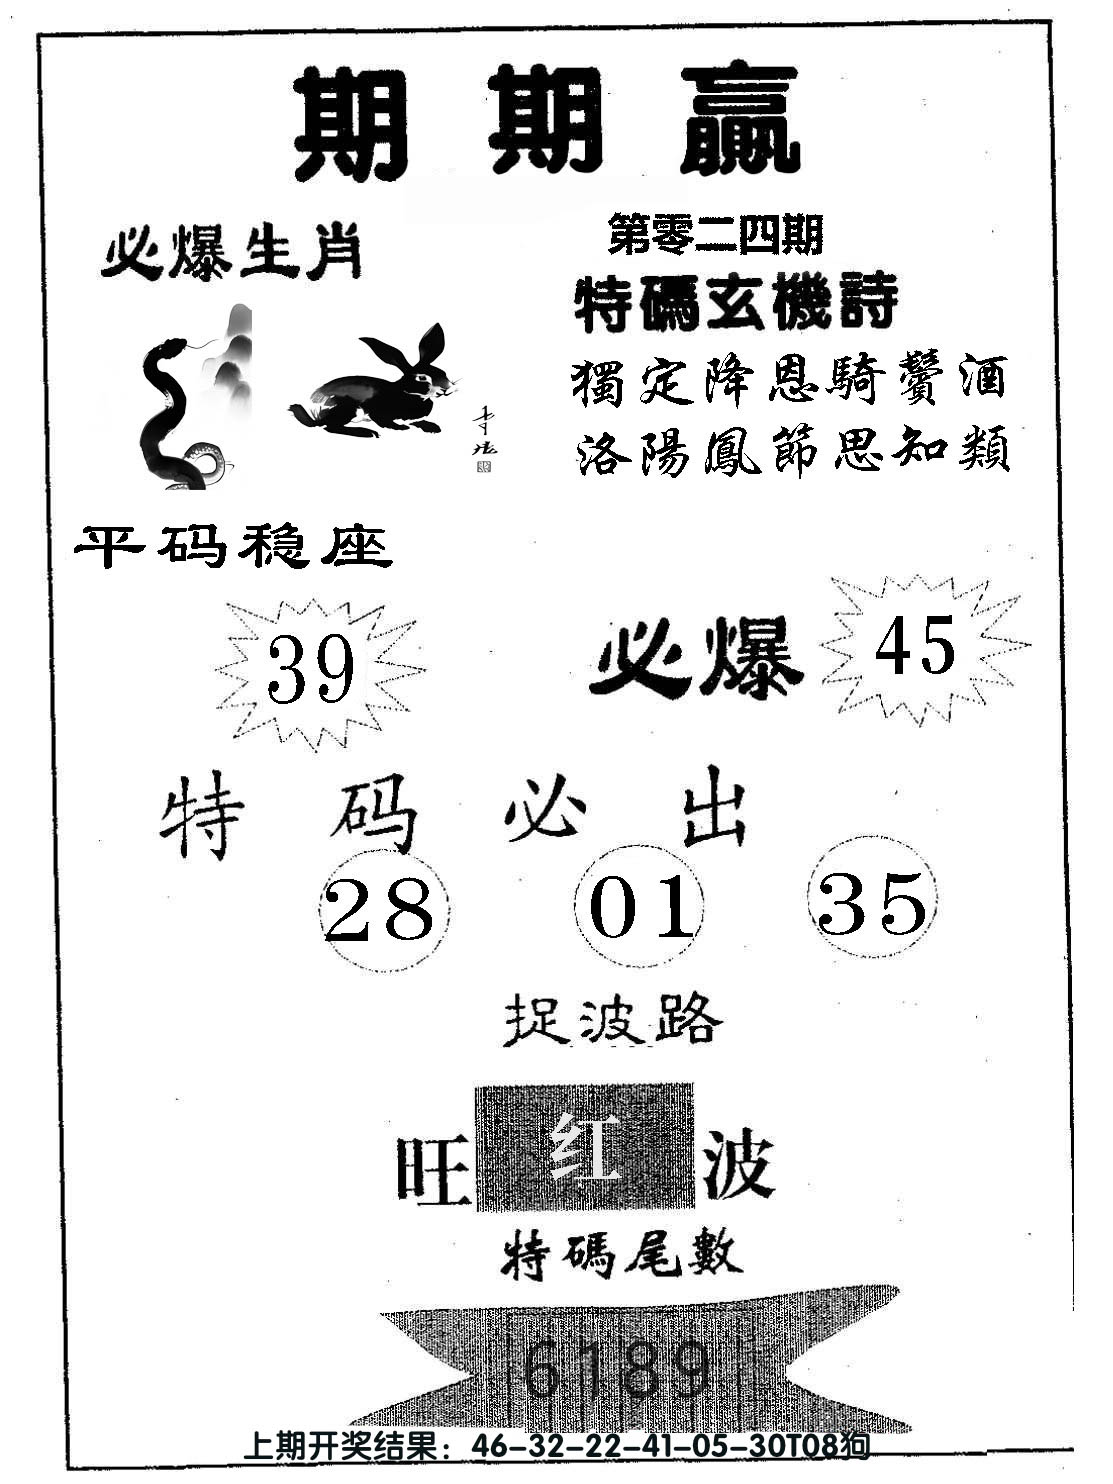 期期赢
必爆生肖
第零二四期
特碼玄機詩
獨定降恩騎鬢酒
洛陽鳳節思知類
平码稳座
39
必爆 45
特码必出
28 01 35
捉波路
旺红波
特碼尾數
6189
上期开奖结果：46-32-22-41-05-30T08狗